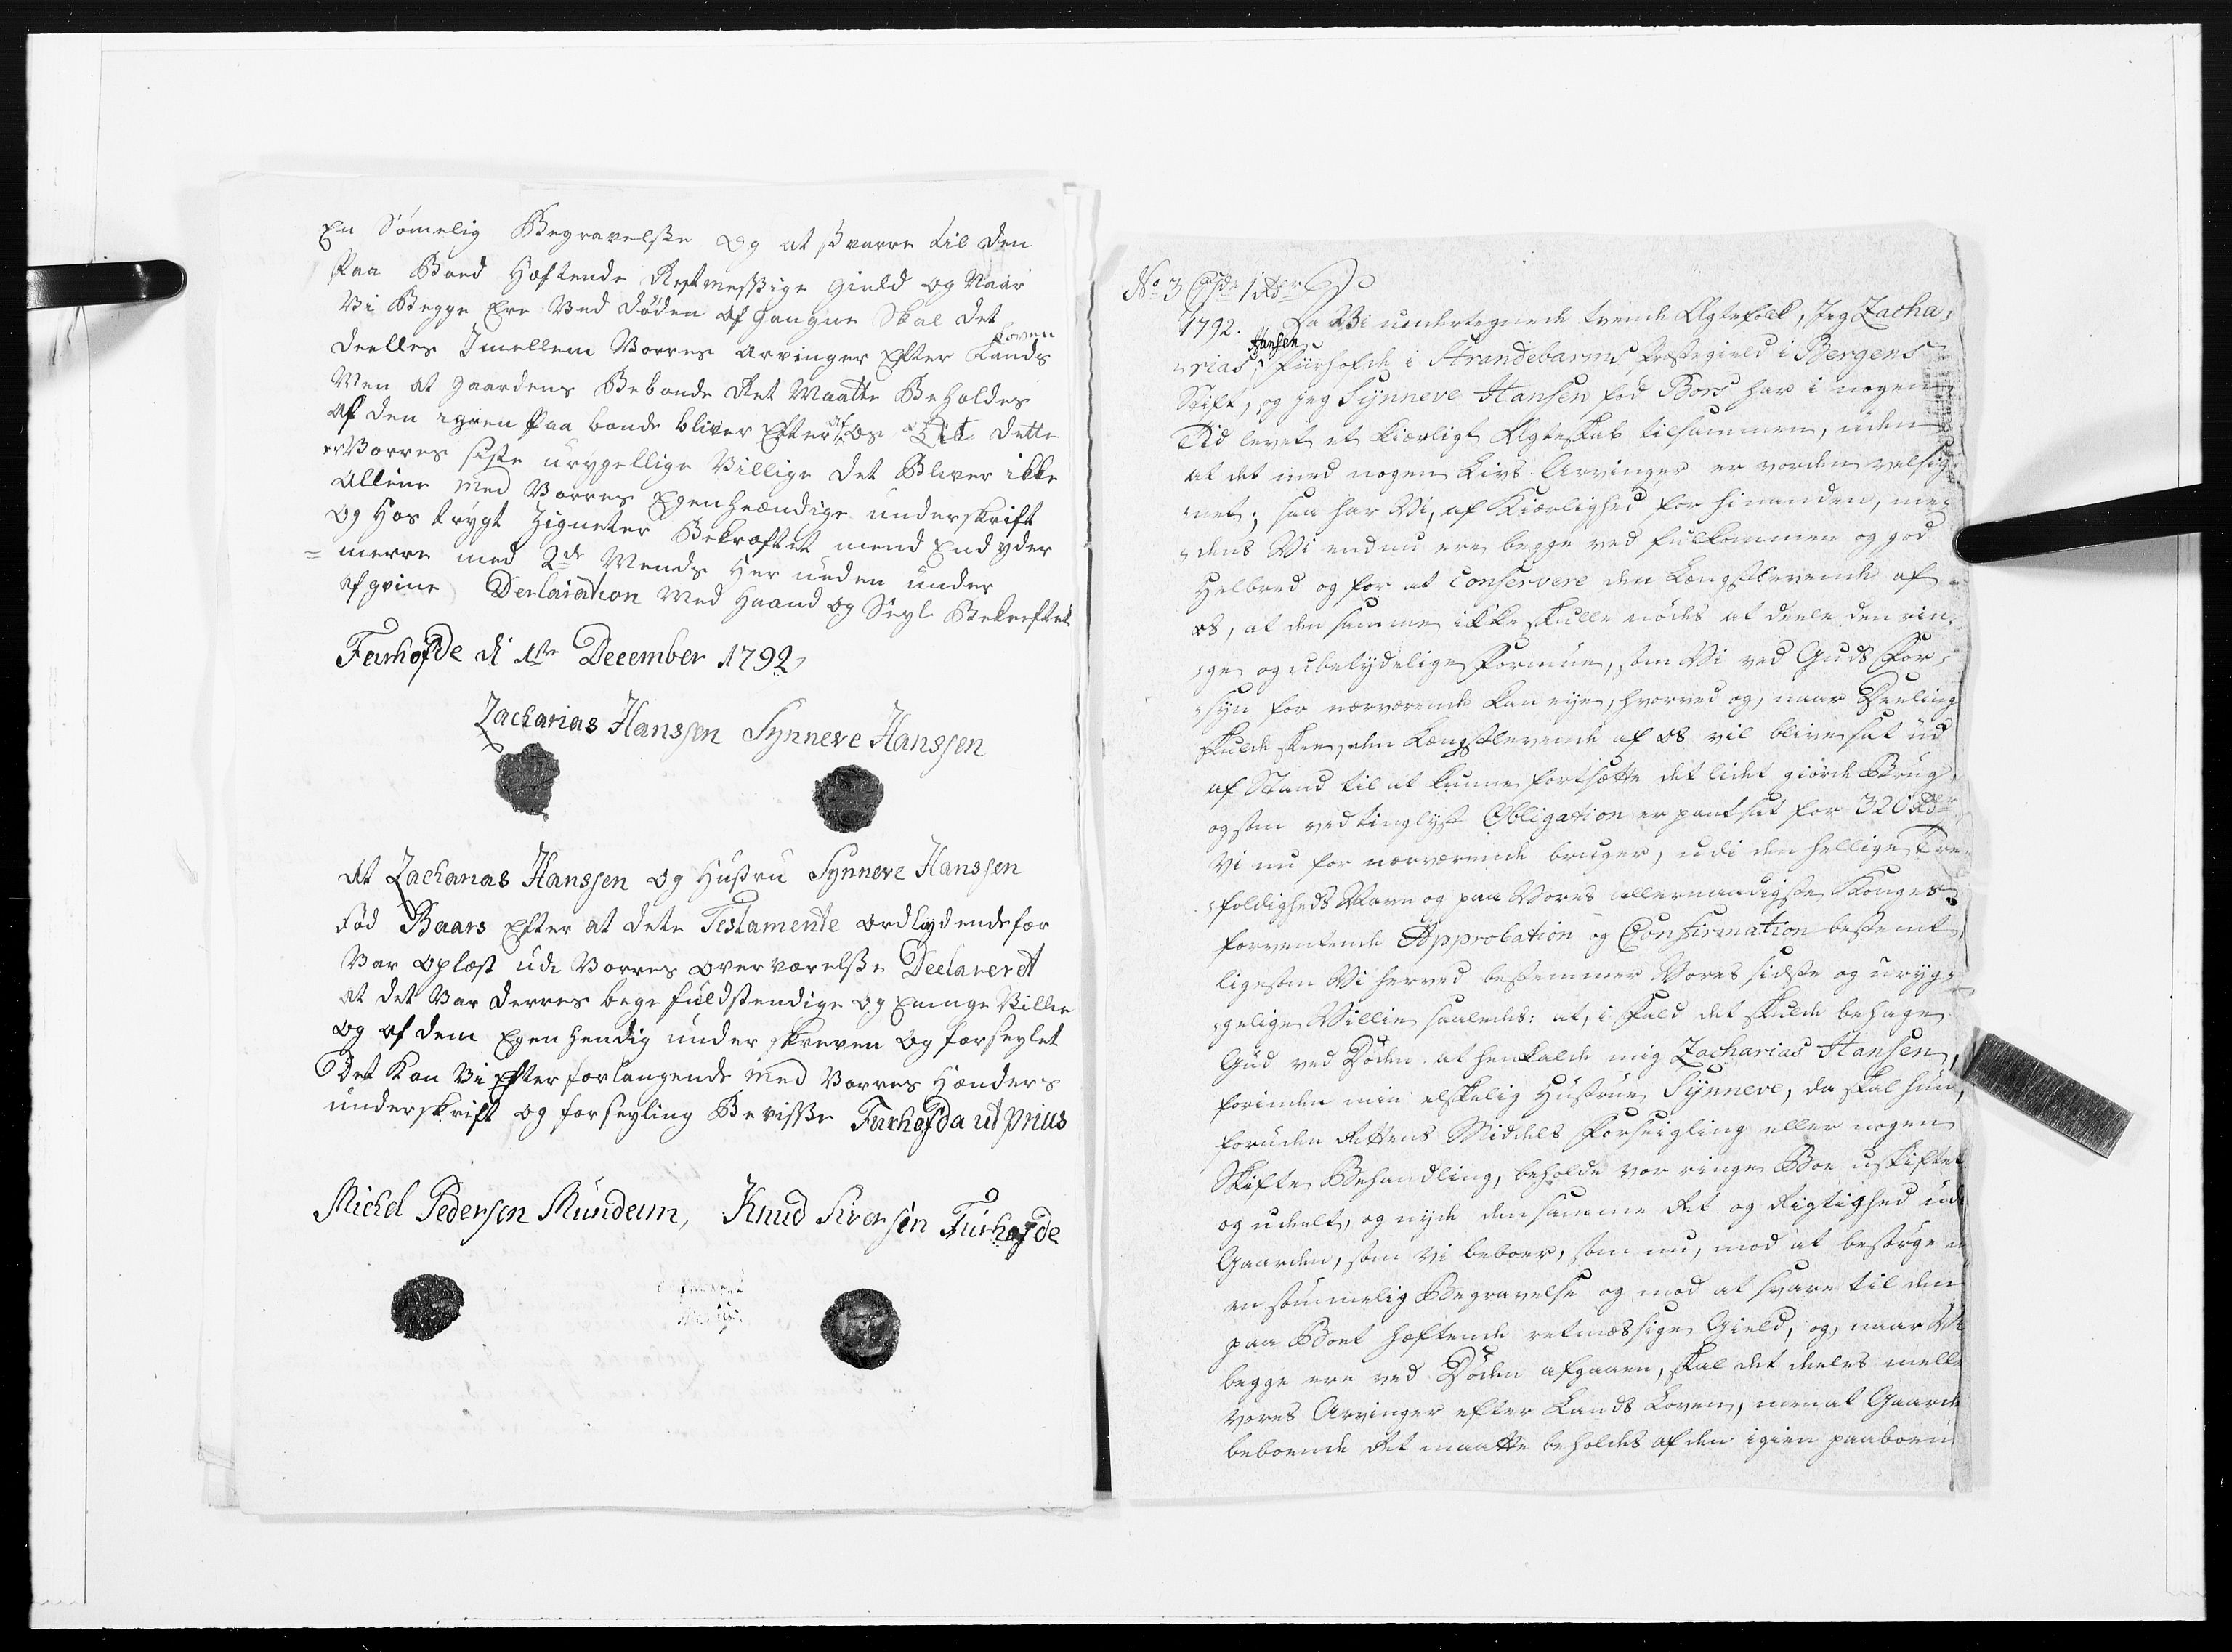 En Sømelig Begravelse Og at svarre til den
Paa Boed Hæftende Retmessige gield og Naar
Vi Begge Ere Ved døden Af gangne Skal det
deelles Imellem Vorres arvinger Efter Lands Loven
Men at gaardens Beboende Ret Maatte Beholdes
Af den igien Paa boende bliver Efter Os dette
er Vorres siste urygellige Villige det Bliver ikke
Alleine med Vorres Egenhændige underskrift
og Hos trygt Zigneter Bekræftet mend End yder
= merre med 2de Mends Her neden under
afgvine Derlaration Med Haand og Segl Bekreftet
Furhofde d 1ste December 1792
Zacharias Hanssen Synneve Hanssen
At Zacharias Hanssen og Hustru Synneve Hanssen
Fød Baars Efter at dete Testamente ordlydende for
Var oplæst udi Vorres overværelse Declareret
at det Var derres bege fuldstendige og Eenige Villie
og af dem Egenhendig under skreven og forseglet
Det Kan Vi Efter forlangende med Vorres Hænders
underskrift og forsegling Bevisse Furhofda ut prius
Michel Pedersen Mundeim, Knud Siversen Furhofde
No 3
1792. Da Vi undertegnede tvende Ægtefolk, Jeg Zacha,
rias Hansen Fürhofde i Strandebarms Præstegield i Bergens
Stift, og jeg Synneve Hansen fød Bors har i nogen
Tid levet et kierligt Ægteskab tilsammen, uden
at det med nogen Livs Arvinger er vorden velsig
net; saa har Vi, af Kiærlighed for hinanden, me
dens Vi endnu ere begge ved fulkommen og god
Helbred og for at conservere den Længstlevende af
os, at den samme ikke skulle nødes at deele den rin
ge og ubetydelige Formue, som Vi ved Guds For,
syn for nærværende kan eje, hvorved og, naar Deeling
skulde skee, den Længstlevende af os vil blive sat ud
af Stand til at kunne fortsætte det lidet giørde Brug
og som ved tinglyst Obligation er pantsat for 320 Rdr
Vi nu for nærværende bruger, udi den hellige Tre
foldigheds Navn og paa Vores allernaadigste Konges
forventende Approbation og Confirmation bestemt,
ligesom Vi herved bestemmer Vores sidste og uryg,
gelige Villie saaledes: at, i Fald det skulde behage
Gud ved Døden at henkalde mig Zacharias Hansen,
forinden min elskelig Hustrue Synneve, da skal hun,
foruden Rettens Middels Forseigling eller nogen
Skifte Behandling, beholde vor ringe Boe uskiftet
og udeelt, og nyde den samme Ret og Rigtighed ud
Gaarden, som vi beboer, som nu, mod at besørge
en sømmelig Begravelse og mod at svare til den
paa Boet hæftende retmæssige Gield, og, naar Vi
begge ere ved Døden afgaaen, skal det deeles melle
vores Arvinger efter Lands Loven, men at Gaarde
beboende Ret maatte beholdes af den igien paaboen